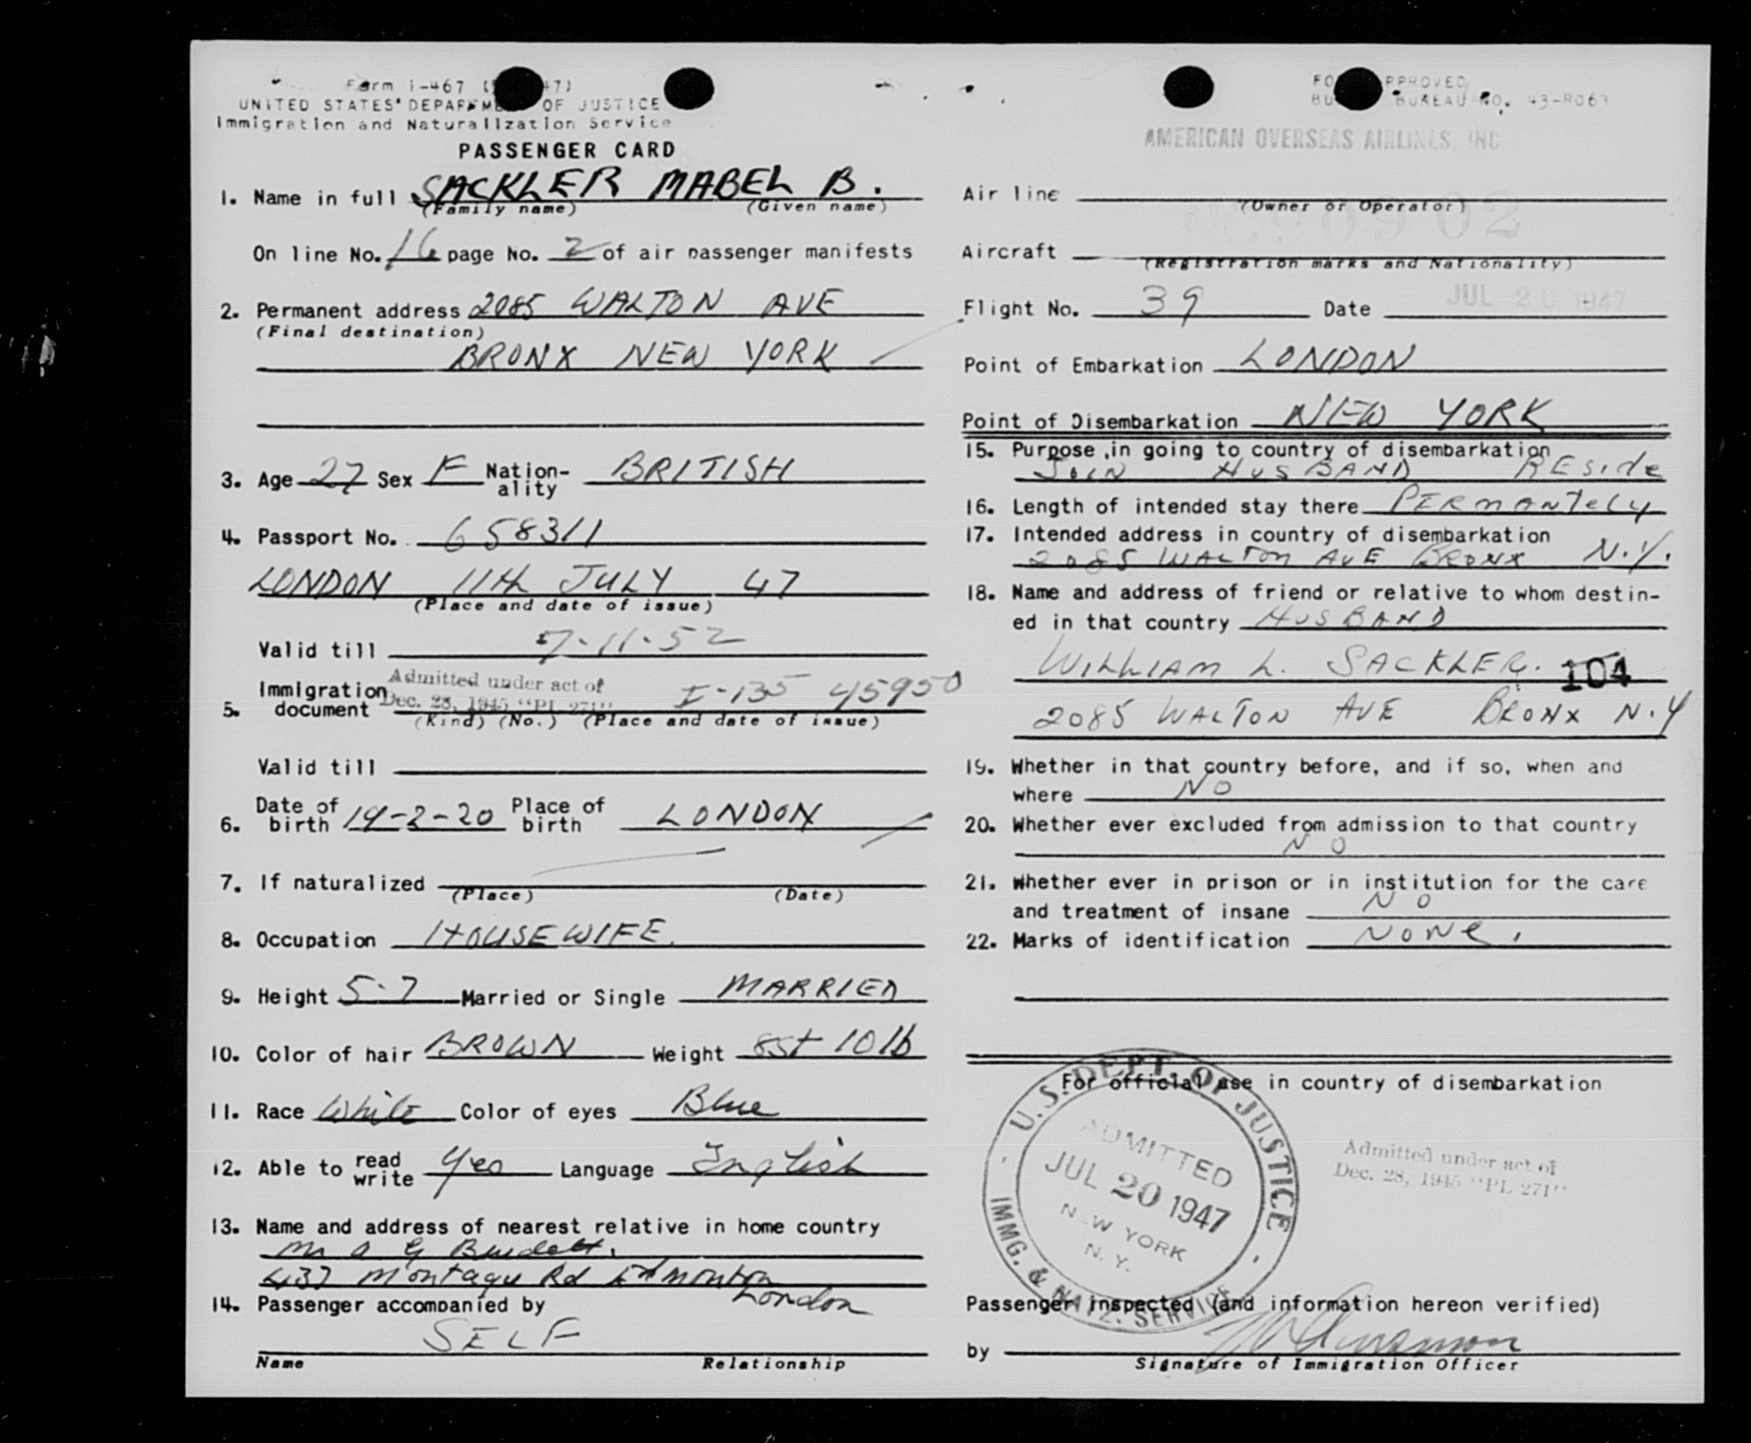 Form I-467 ( 47)
UNITED STATES DEPARTMENT OF JUSTICE
Immigration and Naturalization Service
PASSENGER CARD
1. Name in full SACKLER MABEL B.
(Family name) (Given name)
On line No. 16 page No. 2 of air passenger manifests
2. Permanent address 2085 WALTON AVE
(Final destination)
BRONX NEW YORK
3. Age 27 Sex F Nation-ality BRITISH
4. Passport No. 658311
LONDON 11th JULY 47
(Place and date of issue)
Valid till 7-11-52
Admitted under act of
Dec. 28, 1945 "PL 271"
5. Immigration document I-135 45950
(Kind) (No.) (Place and date of issue)
Valid till
6. Date of birth 14-2-20 Place of birth LONDON
7. If naturalized
(Place) (Date)
8. Occupation HOUSEWIFE.
9. Height 5-7 Married or Single MARRIED
10. Color of hair BROWN Weight 8st 10lb
11. Race White Color of eyes Blue
12. Able to read write Yes Language English
13. Name and address of nearest relative in home country
Mr A G
437 Montagu Rd Edmonton
London
14. Passenger accompanied by
SELF
Name Relationship
FORM APPROVED
BUREAU NO. 43-R063
AMERICAN OVERSEAS AIRLINES, INC
Air line
(Owner or Operator)
Aircraft
(Registration marks and Nationality)
Flight No. 39 Date JUL 20 1947
Point of Embarkation LONDON
Point of Disembarkation NEW YORK
15. Purpose in going to country of disembarkation
JOIN HUSBAND RESide
16. Length of intended stay there PERMANTELY
17. Intended address in country of disembarkation
2085 WALTON AVE BRONX N.Y.
18. Name and address of friend or relative to whom destin-
ed in that country HUSBAND
WILLIAM L. SACKLER. 104
2085 WALTON AVE BRONX N.Y
19. Whether in that country before, and if so, when and
where NO
20. Whether ever excluded from admission to that country
NO
21. Whether ever in prison or in institution for the care
and treatment of insane NO
22. Marks of identification NONE.
For official use in country of disembarkation
U.S. DEPT. OF JUSTICE
ADMITTED
JUL 20 1947
NEW YORK
N. Y.
IMMG. & NATZ. SERVICE
Admitted under act of
Dec. 28, 1945 "PL 271"
Passenger inspected (and information hereon verified)
by
Signature of Immigration Officer